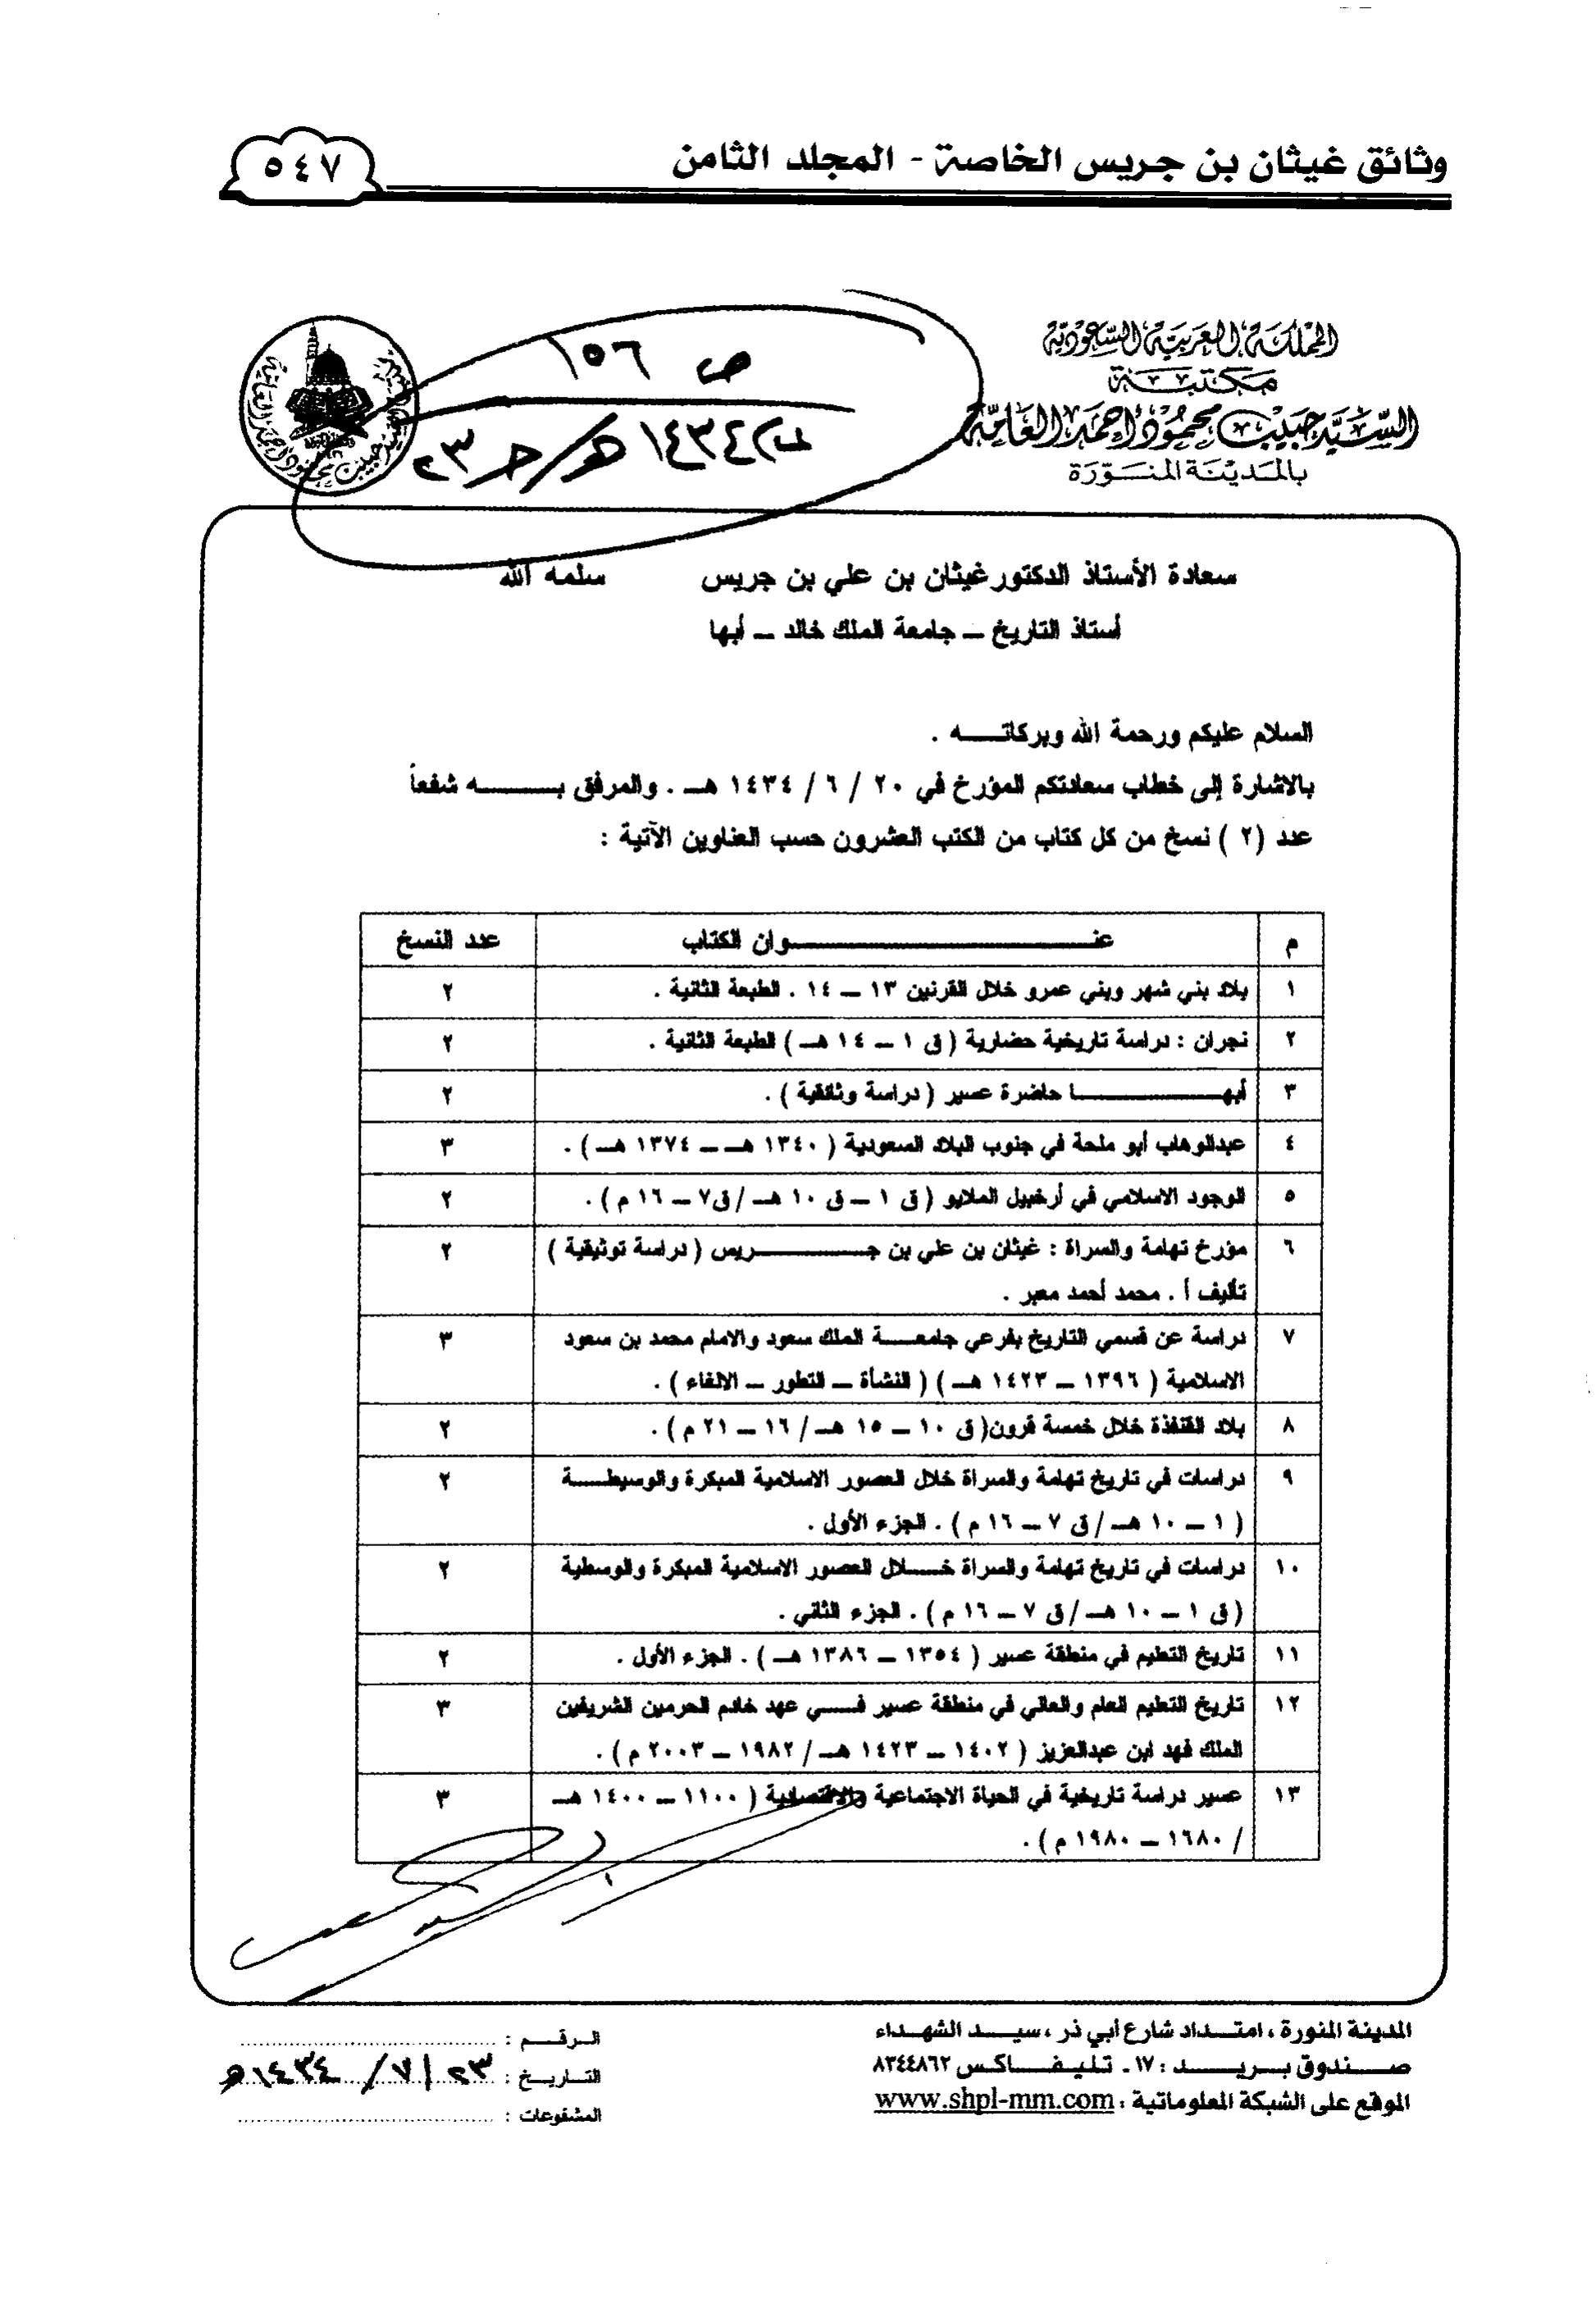 وثائق غيثان بن جريس الخاصة - المجلد الثامن
٥٤٧
المملكة العربية السعودية
مكتبة
السيد حبيب محمود أحمد العامة
بالمدينة المنورة
ص ١٥٦
سعادة الأستاذ الدكتور غيثان بن علي بن جريس سلمه الله
أستاذ التاريخ – جامعة الملك خالد – أبها
السلام عليكم ورحمة الله وبركاتـــه .
بالاشارة إلى خطاب سعادتكم المؤرخ في ٢٠ / ٦ / ١٤٣٤ هـ . والمرفق بـــــه شفعاً
عدد ( ٢ ) نسخ من كل كتاب من الكتب العشرون حسب العناوين الآتية :
م عنـــــــوان الكتاب عدد النسخ
١ بلاد بني شهر وبني عمرو خلال القرنين ١٣ – ١٤ . الطبعة الثانية . ٢
٢ نجران : دراسة تاريخية حضارية ( ق ١ – ١٤ هـ ) الطبعة الثانية . ٢
٣ أبهـــــــا حاضرة عسير ( دراسة وثائقية ) . ٢
٤ عبدالوهاب أبو ملحة في جنوب البلاد السعودية ( ١٣٤٠ هـ – ١٣٧٤ هـ ) . ٣
٥ الوجود الاسلامي في أرخبيل الملايو ( ق ١ – ق ١٠ هـ / ق٧ – ١٦ م ) . ٢
٦ مؤرخ تهامة والسراة : غيثان بن علي بن جـــــــريس ( دراسة توثيقية ) ٢
تأليف أ . محمد أحمد معبر .
٧ دراسة عن قسمي التاريخ بفرعي جامعـــة الملك سعود والامام محمد بن سعود ٣
الاسلامية ( ١٣٩٦ – ١٤٢٣ هـ ) ( النشأة – التطور – الالغاء ) .
٨ بلاد القنفذة خلال خمسة قرون( ق ١٠ – ١٥ هـ / ١٦ – ٢١ م ) . ٢
٩ دراسات في تاريخ تهامة والسراة خلال العصور الاسلامية المبكرة والوسيطـــة ٢
( ١ – ١٠ هـ / ق ٧ – ١٦ م ) . الجزء الأول .
١٠ دراسات في تاريخ تهامة والسراة خـــلال العصور الاسلامية المبكرة والوسطية ٢
( ق ١ – ١٠ هـ / ق ٧ – ١٦ م ) . الجزء الثاني .
١١ تاريخ التعليم في منطقة عسير ( ١٣٥٤ – ١٣٨٦ هـ ) . الجزء الأول . ٢
١٢ تاريخ التعليم العام والعالي في منطقة عسير فـــي عهد خادم الحرمين الشريفين ٣
الملك فهد ابن عبدالعزيز ( ١٤٠٢ – ١٤٢٣ هـ / ١٩٨٢ – ٢٠٠٣ م ) .
١٣ عسير دراسة تاريخية في الحياة الاجتماعية والاقتصادية ( ١١٠٠ – ١٤٠٠ هـ ٣
/ ١٦٨٠ – ١٩٨٠ م ) .
المدينة المنورة ، امتـــداد شارع أبي ذر ، سيـــد الشهـداء
صـــندوق بـريـــد : ١٧ - تـليـفـــاكـس ٨٣٤٤٨٦٢
الموقع على الشبكة المعلوماتية : www.shpl-mm.com
الـرقـــم :
التـاريـــخ : ٢٣ / ٧ / ١٤٣٤ هـ
المشفوعات :